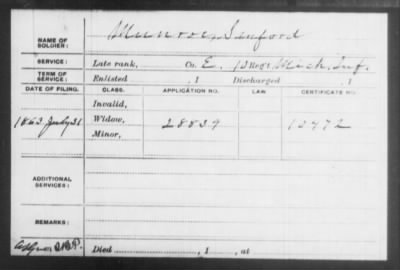 NAME OF SOLDIER: Munroe, Sanford
SERVICE: Late rank, Co. E, 13 Reg't Mich. Inf.
TERM OF SERVICE: Enlisted , 1 Discharged , 1
DATE OF FILING. CLASS. APPLICATION NO. LAW. CERTIFICATE NO.
Invalid,
1863 July 31 Widow, 28839 12972
Minor,
ADDITIONAL SERVICES:
REMARKS:
Died , 1 , at